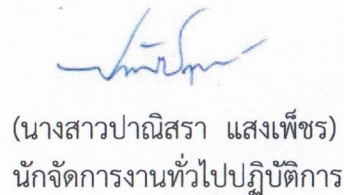 (นางสาวปาณิสรา แสงเพ็ชร)
นักจัดการงานทั่วไปปฏิบัติการ